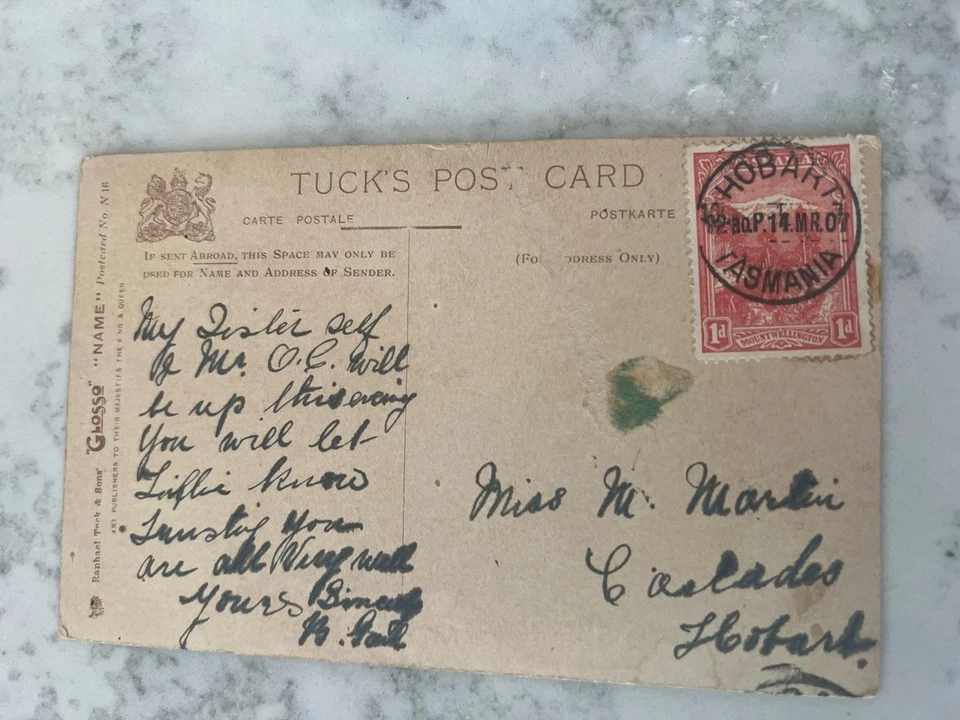 TUCK'S POST CARD
CARTE POSTALE
POSTKARTE
IF SENT ABROAD, THIS SPACE MAY ONLY BE
USED FOR NAME AND ADDRESS OF SENDER.
(FO DDRESS ONLY)
Raphael Tuck & Sons' "GLOSSO" "NAME" Postcard No. N 16
ART PUBLISHERS TO THEIR MAJESTIES THE KING & QUEEN
My Sister self
& Mr. O.C. will
be up this evening
You will let
know
Trusting you
are all Very well
Yours
Miss M. Martin
Cascades
Hobart.
HOBART
14.MR.07
TASMANIA
1d 1d
MOUNT WELLINGTON